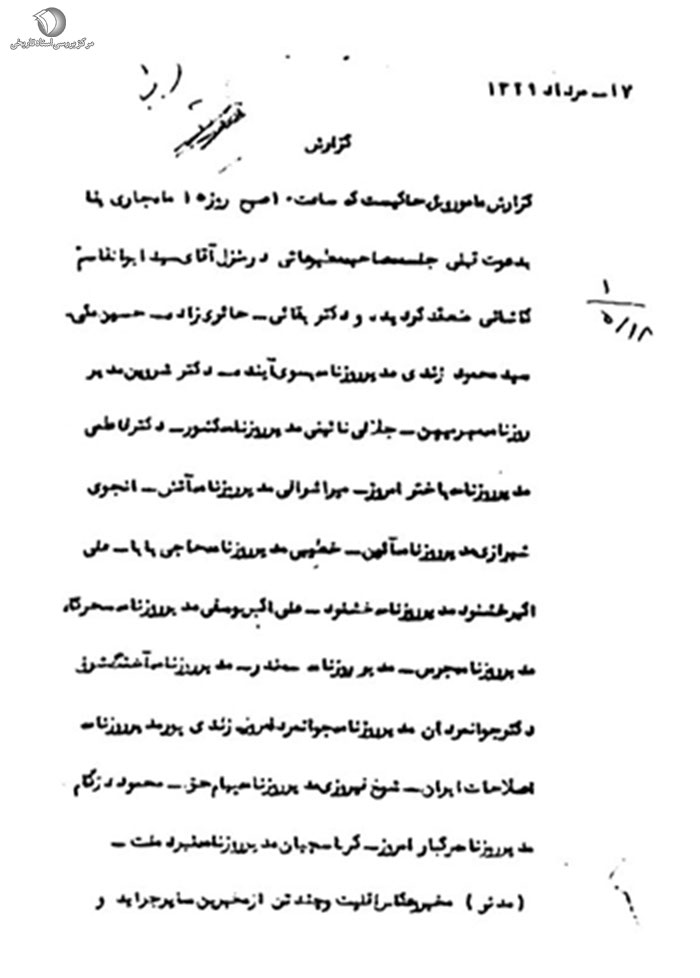 مرکز بررسی اسناد تاریخی
۱۷ــ مرداد ۱۳۲۹
گزارش
گزارش مامور ویژه حاکیست که ساعت ۱۰ صبح روز ۱۵ ماهجاری بنا
بدعوت قبلی جلسه مصاحبه مطبوعاتی در منزل آقای سید ابوالقاسم
کاشانی منعقد گردید و دکتر بقائی ــ حائری زاده ــ حسین مکی ــ
سید محمود زندی مدیر روزنامه بسوی آینده ــ دکتر شروین مدیر
روزنامه میهن ــ جلالی نائینی مدیر روزنامه کشور ــ دکتر فاطمی
مدیر روزنامه باختر امروز ــ میراشرافی مدیر روزنامه آتش ــ انجوی
شیرازی مدیر روزنامه آئین ــ خطیبی مدیر روزنامه حاجی بابا ــ علی
اکبر خشنود مدیر روزنامه خشنود ــ علی اکبر یوسفی مدیر روزنامه سحرگاه
مدیر روزنامه جرس ــ مدیر روزنامه سمندر ــ مدیر روزنامه شرق
دکتر جوانمردان مدیر روزنامه جوانمرد امروز زندی پور مدیر روزنامه
اصلاحات ایران ــ مدیر روزنامه پیام حق ــ محمود دژکام
مدیر روزنامه امروز ــ کرباسچیان مدیر روزنامه نبرد ملت ــ
مخبر و عکاس اقلیت و چند تن از مخبرین سایر جراید و
۱
۵/۱۸